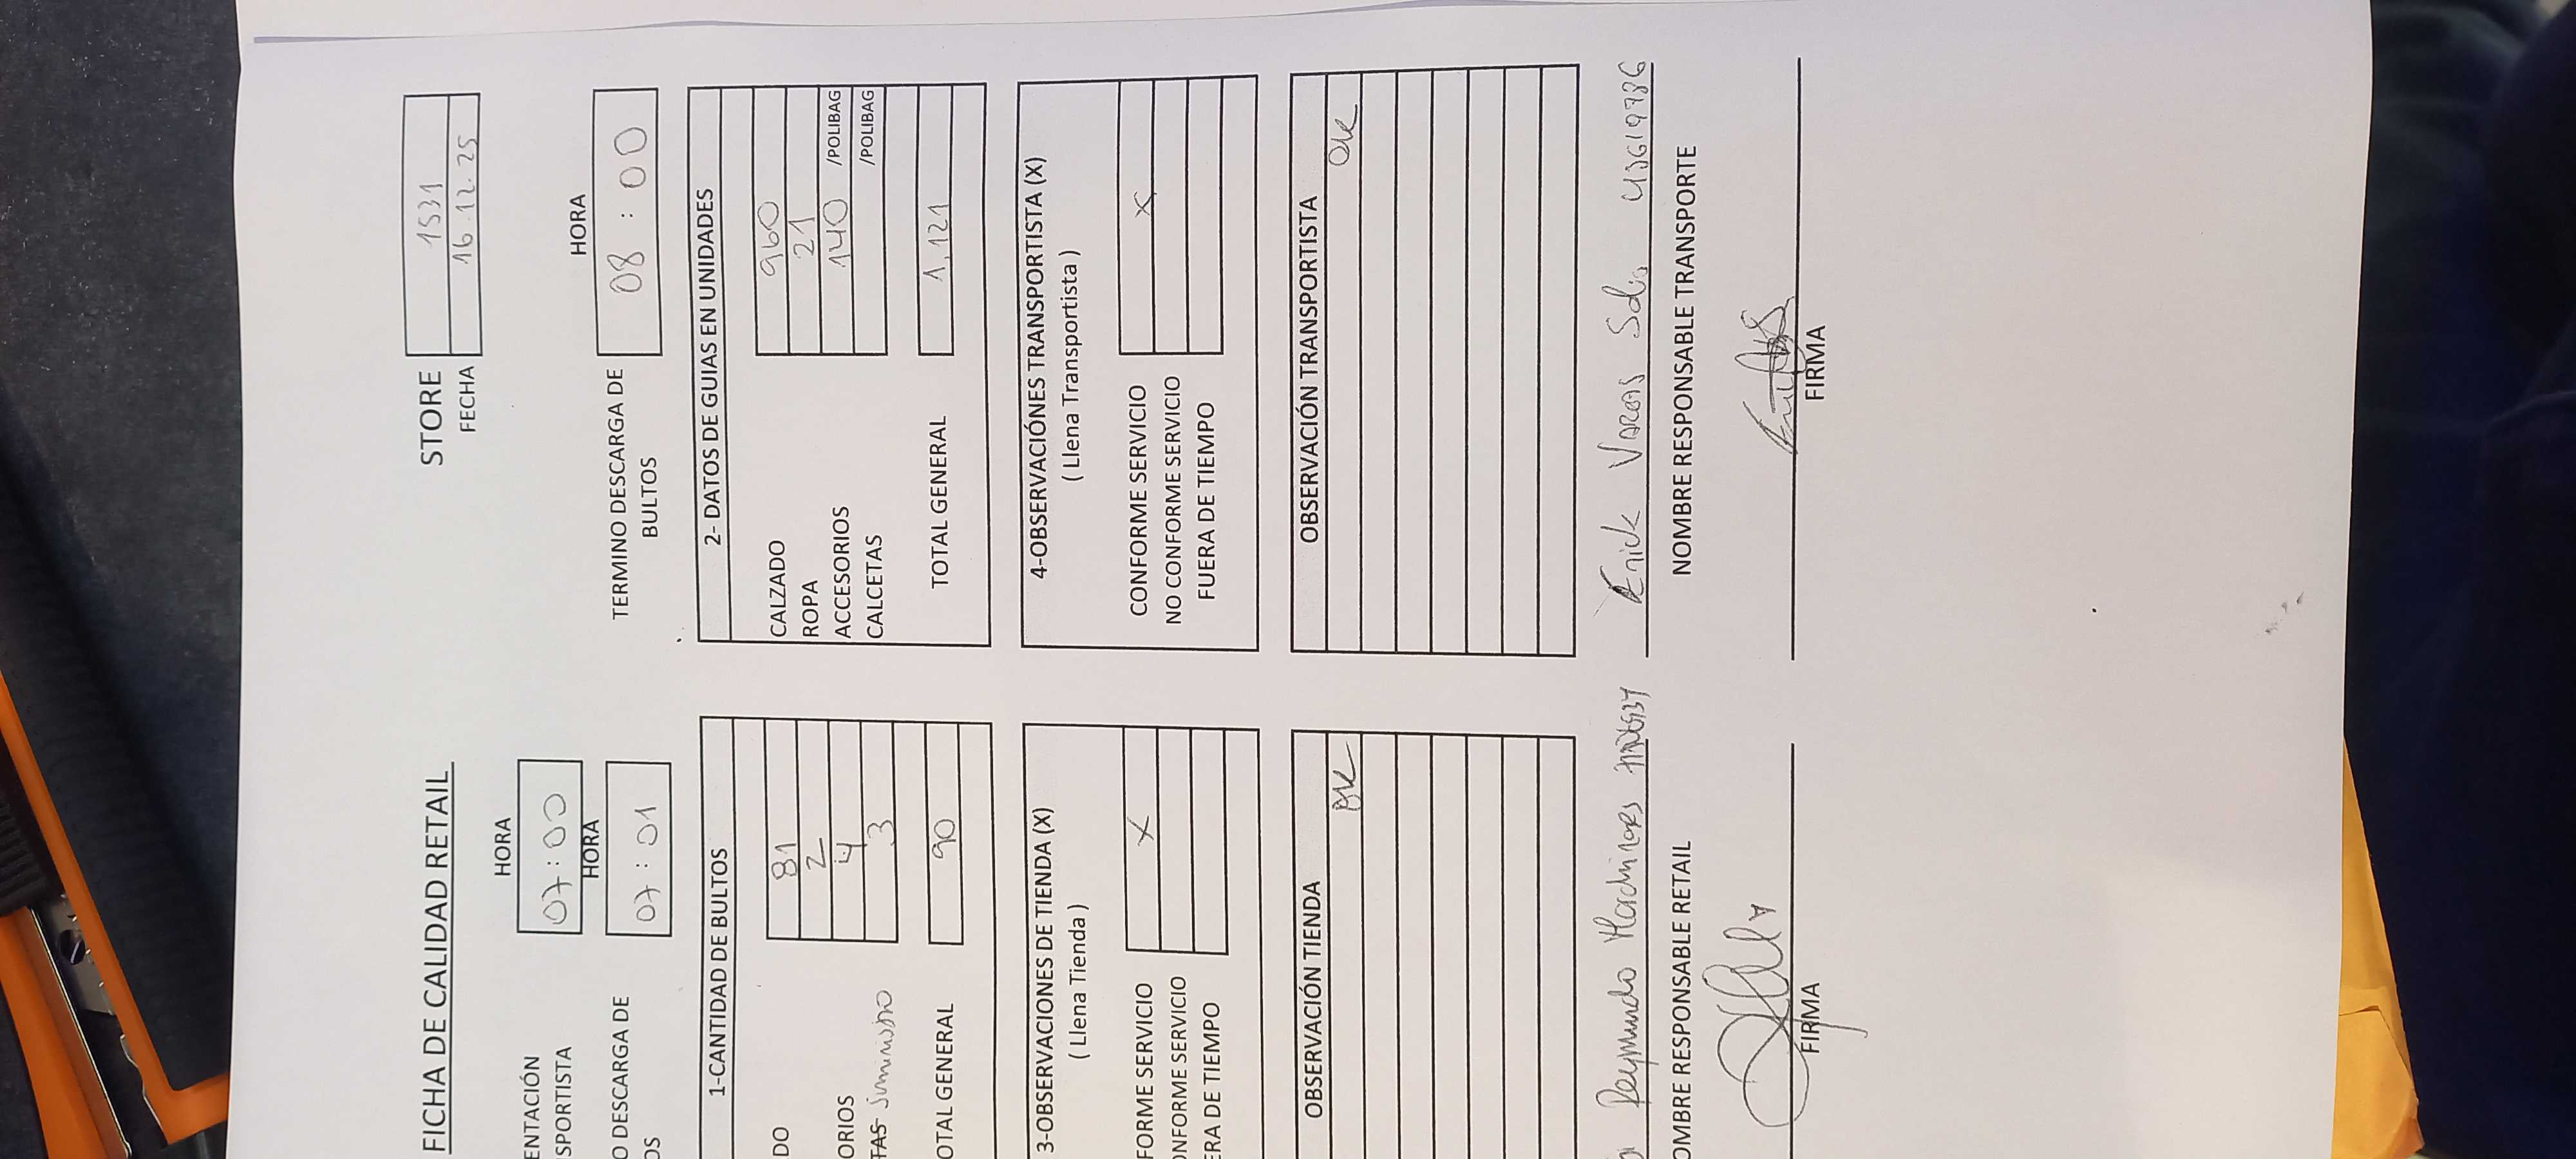 FICHA DE CALIDAD RETAIL
STORE 1531
FECHA 16.12.25
HORA
ENTACIÓN
SPORTISTA 07:00
HORA HORA
O DESCARGA DE
OS 07:01
TERMINO DESCARGA DE
BULTOS 08:00
1-CANTIDAD DE BULTOS
DO 81
2
ORIOS 4
TAS Suministro 3
OTAL GENERAL 90
2- DATOS DE GUIAS EN UNIDADES
CALZADO 960
ROPA 21
ACCESORIOS 140 /POLIBAG
CALCETAS /POLIBAG
TOTAL GENERAL 1,121
3-OBSERVACIONES DE TIENDA (X)
( Llena Tienda )
FORME SERVICIO X
ONFORME SERVICIO
ERA DE TIEMPO
4-OBSERVACIÓNES TRANSPORTISTA (X)
( Llena Transportista )
CONFORME SERVICIO X
NO CONFORME SERVICIO
FUERA DE TIEMPO
OBSERVACIÓN TIENDA
OK
OBSERVACIÓN TRANSPORTISTA
OK
Reymundo
OMBRE RESPONSABLE RETAIL
FIRMA
Erick Vargas
NOMBRE RESPONSABLE TRANSPORTE
FIRMA